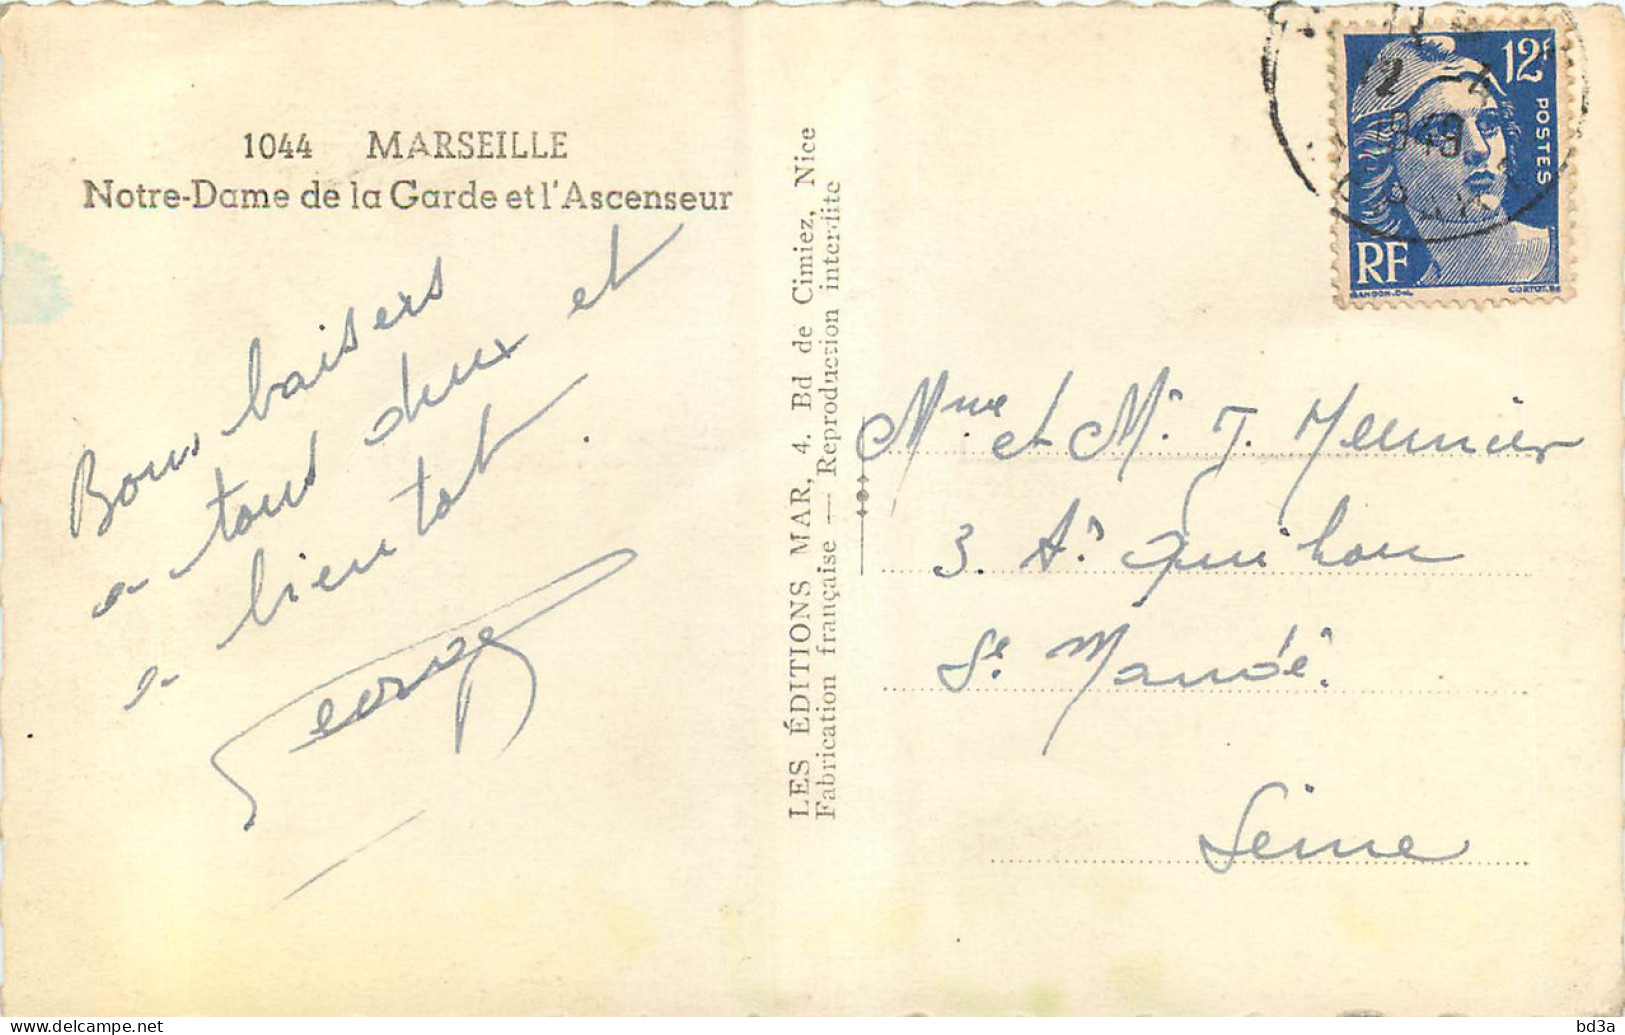 1044 MARSEILLE
Notre-Dame de la Garde et l'Ascenseur
Bons baisers
a tous deux et
a bientot.
Georges
LES ÉDITIONS MAR, 4. Bd de Cimiez, Nice
Fabrication française — Reproduction interdite
12F
POSTES
RF
GANDON.DEL.
CORTOT.SC
12 4
1949
Mme et Mr J. Meunier
3. Ar Quihou
St. Mandé.
Seine
delcampe.net
bd3a